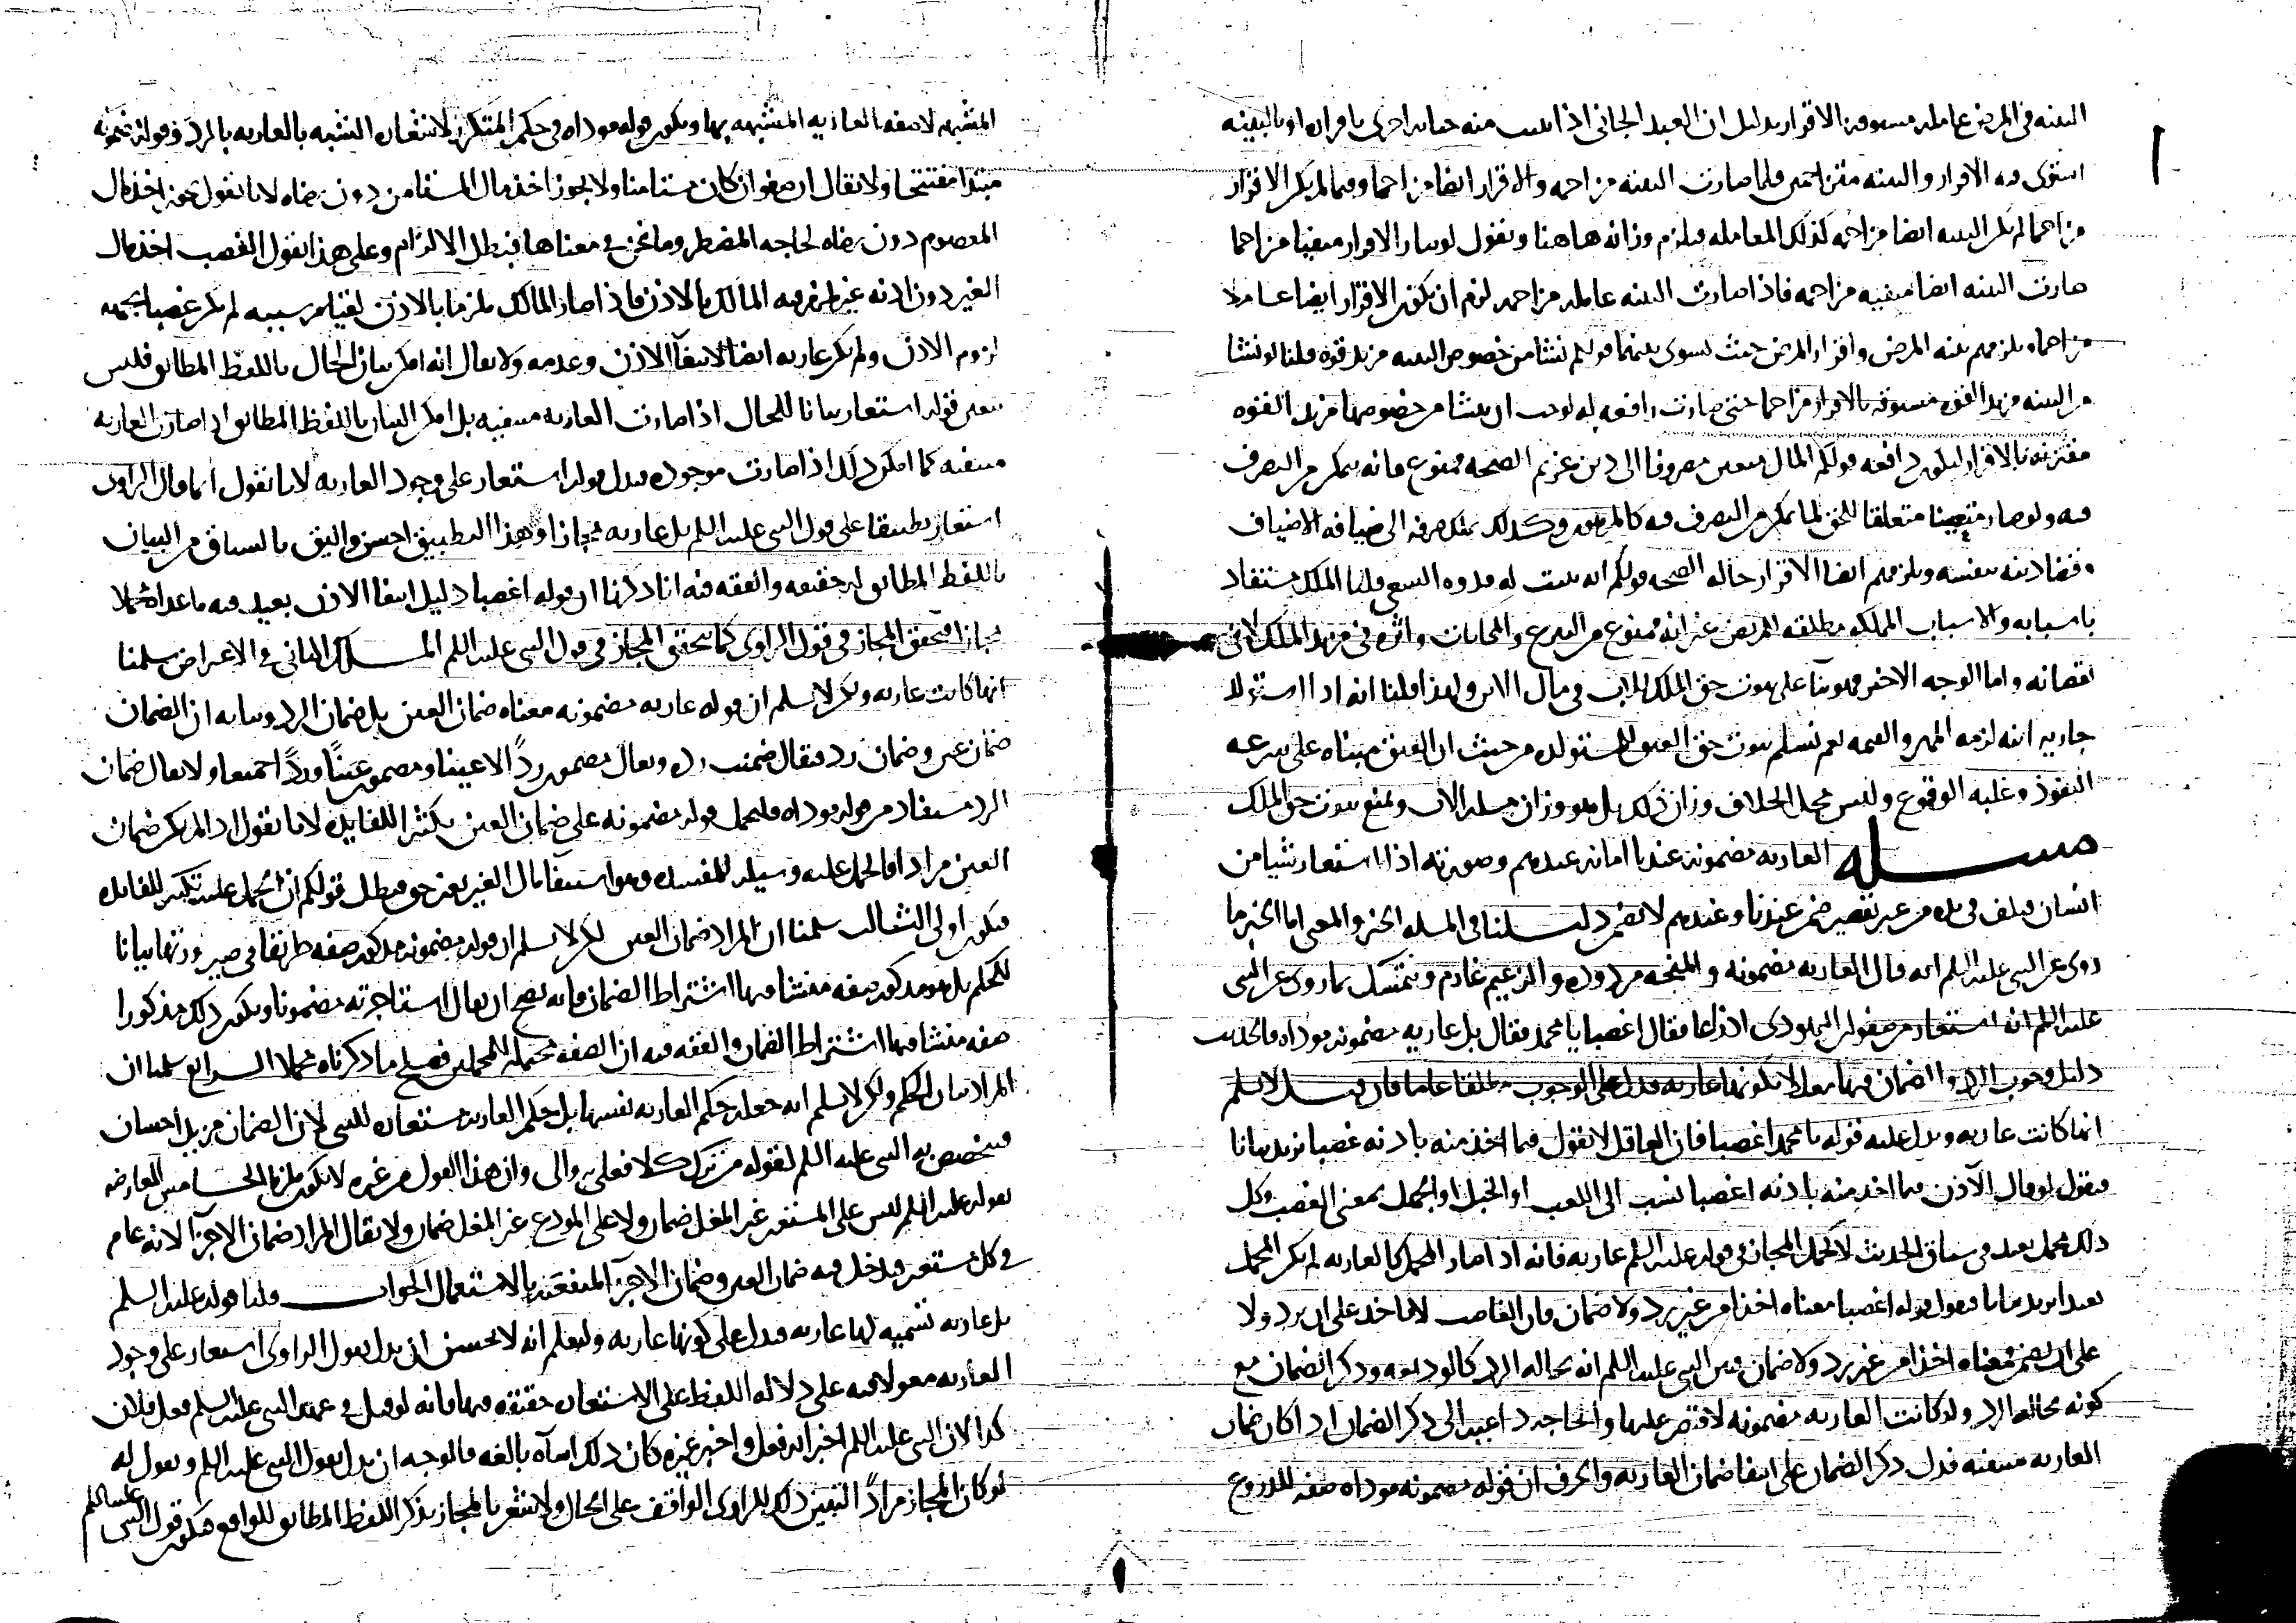 البينة في المرض عاملة مسبوقة الاقرار بدليل ان العبد الجاني اذا منه جناية اخرى باقراره او بالبينة
استوى فيه الاقرار والبينة مقترنتين فلما صارت البينة مزاحمة والاقرار ايضا مزاحما وفيما لم يكن الاقرار
مزاحما لم تكن البينة ايضا مزاحمة كذلك المعاملة فيلزم وزانه هاهنا ونقول لو صار الاقرار منفيا مزاحما
صارت البينة ايضا منفية مزاحمة فاذا صارت البينة عاملة مزاحمة لزم ان يكون الاقرار ايضا عاملا
مزاحما ويلزمهم بينة المرض واقرار المرض حيث تسوى بينهما قولهم نشا من خصوص البينة مزيد قوة قلنا لو نشا
من البينة مزيد القوة مسبوقة بالاقرار مزاحما حتى صارت رافعة له لوجب ان ينشا من خصوصها مزيد القوة
مقترنة بالاقرار ليكون دافعة قولكم المال متعين مصروفا الى دين غريم الصحة ممنوع فانه يمكن من التصرف
فيه ولو صار متعينا متعلقا للحق لما تمكن من التصرف فيه كالمرهون وكذلك يملك صرفه الى ضيافة الاضياف
ونفاذ بيعه بنفسه ويلزمهم ايضا الاقرار حالة الصحة قولكم انه يثبت له قدوه السعي قلنا الملك مستفاد
باسبابه والاسباب المملكة مطلقة للمريض غير انه ممنوع من التبرع والمحابات واثره في مزيد الملك لا في
نقصانه واما الوجه الاخر فهو بنا على ثبوت حق الملك للاب في مال الابن ولهذا قلنا انه اذا استولد
جارية ابنه لزمه المهر والقيمة نعم نسلم ثبوت حق العتق للمستولدة من حيث ان العتق مبناه على سرعة
النفوذ وغلبة الوقوع وليس محل الخلاف وزان ذلك بل هو وزان مسلة الاب ونمنع ثبوت حق الملك
مسله العارية مضمونة عندنا امانة عندهم وصورته اذا استعار شيا من
انسان فتلف في يده من غير تقصير ضمن عندنا وعندهم لا يضمن دليلنا في المسلة الخبر والمعنى اما الخبر ما
روى عن النبي عليه السلم انه قال العارية مضمونة والمنحة مردودة والزعيم غارم ونتمسك بما روى عن النبي
عليه السلم انه استعار من صفوان اليهودي ادراعا فقال اغصبا يا محمد فقال بل عارية مضمونة موداه والحديث
دليل وجوب الرد والضمان فيها معللا بكونها عارية فدل على الوجوب مطلقا عاما فان قيل لا نسلم
انها كانت عارية ويدل عليه قوله يا محمد اغصبا فان العاقل لا يقول فيما اخذ منه باذنه غصبا نزيد بيانا
فنقول لو قال الآذن فيما اخذ منه باذنه اغصبا نسب الى اللعب او الخبل او الحمل بمعنى الغصب وكل
ذلك محمل بعيد في سياق الحديث لا كحمل المجاز في قوله عليه السلم عارية فانه اذا صار المحل كالعارية لم يكن المحمل
بعيدا نزيد بيانا فنقول قوله اغصبا معناه اخذا من غير رد ولا ضمان فان الغاصب لا ياخذ على ان يرد ولا
على ان يضمن فمعناه اخذا من غير رد ولا ضمان فبين النبي عليه السلم انه بحالة الرد كالوديعة وذكر الضمان مع
كونه بحالة الرد ولو كانت العارية مضمونة لاقتصر عليها والحاجة داعية الى ذكر الضمان اذا كان ضمان
العارية منتفية فدل ذكر الضمان على انتفا ضمان العارية والحرف ان قوله مضمونة موداه صفة للدروع
المشبهة لا صفة العارية المشبهة بها ويكون قوله موداه في حكم المتكرر لاشعار الشبه بالعارية بالرد وقوله مضمونة
مبتدا مفتتحا ولا يقال ان صفوان كان مستامنا ولا يجوز اخذ مال المستامن دون رضاه لانا نقول يجوز اخذ مال
المعصوم دون رضاه لحاجة المضطر وما نحن في معناها فيبطل الالزام وعلى هذا نقول الغصب اخذ مال
الغير دون اذنه غير ملزم فيه المالك بالاذن فاذا صار المالك ملزما بالاذن لقيام سببه لم يكن غصبا بجهة
لزوم الاذن ولم يكن عارية ايضا لانتفآ الاذن وعدمه ولا يقال انه امكن بيان الحال باللفظ المطابق فليس
يتعين قوله استعار بيانا للحال اذا صارت العارية منتفية بل امكن البيان باللفظ المطابق اذا صارت العارية
منتفية كما امكن ذلك اذا صارت موجودة فيدل قوله استعار على وجود العارية لانا نقول انما قال الراوى
استعار تطبيقا على قول النبي عليه السلم بل عارية مجازا وهذا التطبيق احسن واليق بالسياق من البيان
باللفظ المطابق له حقيقة والفقه فيه انا ذكرنا ان قوله اغصبا دليل انتفا الاذن بعيد فيه ما عداه محملا
مجازا فتحقق المجاز في قول الراوى كما تحقق المجاز في قول النبي عليه السلم المسلك الثاني في الاعتراض سلمنا
انها كانت عارية ولكن لا نسلم ان قوله عارية مضمونة معناه ضمان العين بل ضمان الرد وبيانه ان الضمان
ضمان عين وضمان رد فيقال ضمنت رده ويقال مضمون ردًا لا عينا ومضمون عينًا وردًا جميعا ولا يقال ضمان
الرد مستفاد من قوله موداه فليحمل قوله مضمونة على ضمان العين تكثيرا للفايدة لانا نقول اذا لم يكن ضمان
العين مرادا فالحمل عليه وسيلة للمفسدة وهو استيفآ مال الغير بغير حق فيبطل قولكم ان الحمل عليه تكثير للفايدة
فيكون اولى الثالث سلمنا ان المراد ضمان العين لكن لا نسلم ان قوله مضمونة مذكور صفة طريقا في صيرورتها بيانا
للحكم بل هو مذكور صفة منشا فيها اشتراط الضمان فانه يصح ان يقال استاجرته مضمونا ويكون ذلك مذكورا
صفة منشا فيها اشتراط الضمان والفقه فيه ان الصفة محتملة للمحملين فيصلح ما ذكرناه محملا الرابع سلمنا ان
المراد بيان الحكم ولكن لا نسلم انه جعله حكم العارية نفسها بل حكم العارية مستعارة للنبي لان الضمان مزيد احسان
فيتخصص به النبي عليه السلم لقوله من ترك كلا فعلي والي وان هذا القول من غيره لا يكون ملزما الخامس المعارضة
بقوله عليه السلم ليس على المستعير غير المغل ضمان ولا على المودع غير المغل ضمان ولا يقال المراد ضمان الاجزآ لانه عام
في كل مستعير فيدخل فيه ضمان العين وضمان الاجزآ المنفقد بالاستعمال الجواب قلنا قوله عليه السلم
بل عارية تسمية لها عارية فدل على كونها عارية وليعلم انه لا يحسن ان يدل بقول الراوى استعار على وجود
العارية معولا فيه على دلالة اللفظ على الاستعارة حقيقة فيها فانه لو قيل في عهد النبي عليه السلم فعل فلان
كذا لان النبي عليه السلم اخبر انه فعل واخبر غيره كان ذلك اسآة بالغة فالوجه ان يدل بقول النبي عليه السلم ونقول له
لو كان المجاز مرادًا لتبين ذلك للراوى الواقف على الحال ولا شعر بالمجاز بذكر اللفظ المطابق للواقع فيكون قول النبي عليه السلم